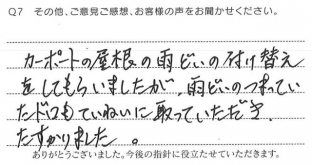 Q7 その他、ご意見ご感想、お客様の声をお聞かせください。
カーポートの屋根の雨どいの付け替え
をしてもらいましたが、雨どいのつまってい
たドロもていねいに取っていただき、
たすかりました。
ありがとうございました。今後の指針に役立たせていただきます。